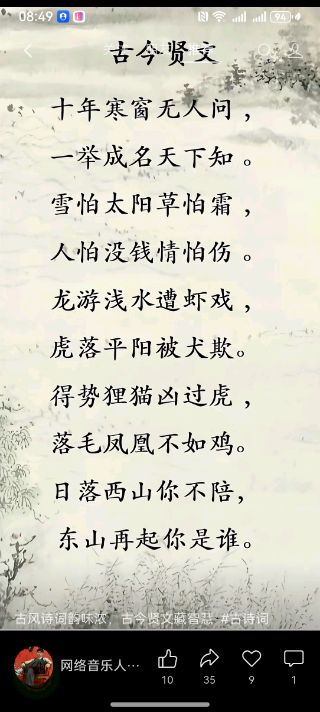 08:49
94
古今贤文
十年寒窗无人问，
一举成名天下知。
雪怕太阳草怕霜，
人怕没钱情怕伤。
龙游浅水遭虾戏，
虎落平阳被犬欺。
得势狸猫凶过虎，
落毛凤凰不如鸡。
日落西山你不陪，
东山再起你是谁。
古风诗词韵味浓，古今贤文藏智慧 #古诗词
网络音乐人…
10
35
9
1